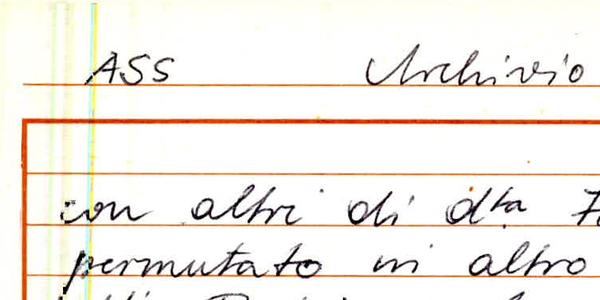 ASS Archivio
con altri di dta
permutato in altro